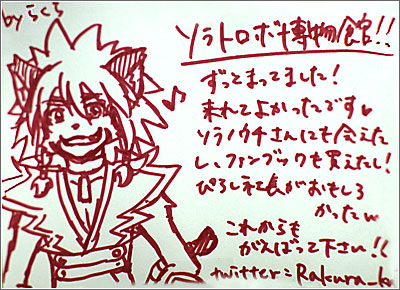 by らくら
ソラトロボ博物館!!
ずっとまってました!
来れてよかったです♥
ソラノウチさんにも会えた
し、ファンブックも買えたし!
ぴろし社長がおもしろ
かったw
これからも
がんばって下さい!!
twitter:Rakura_